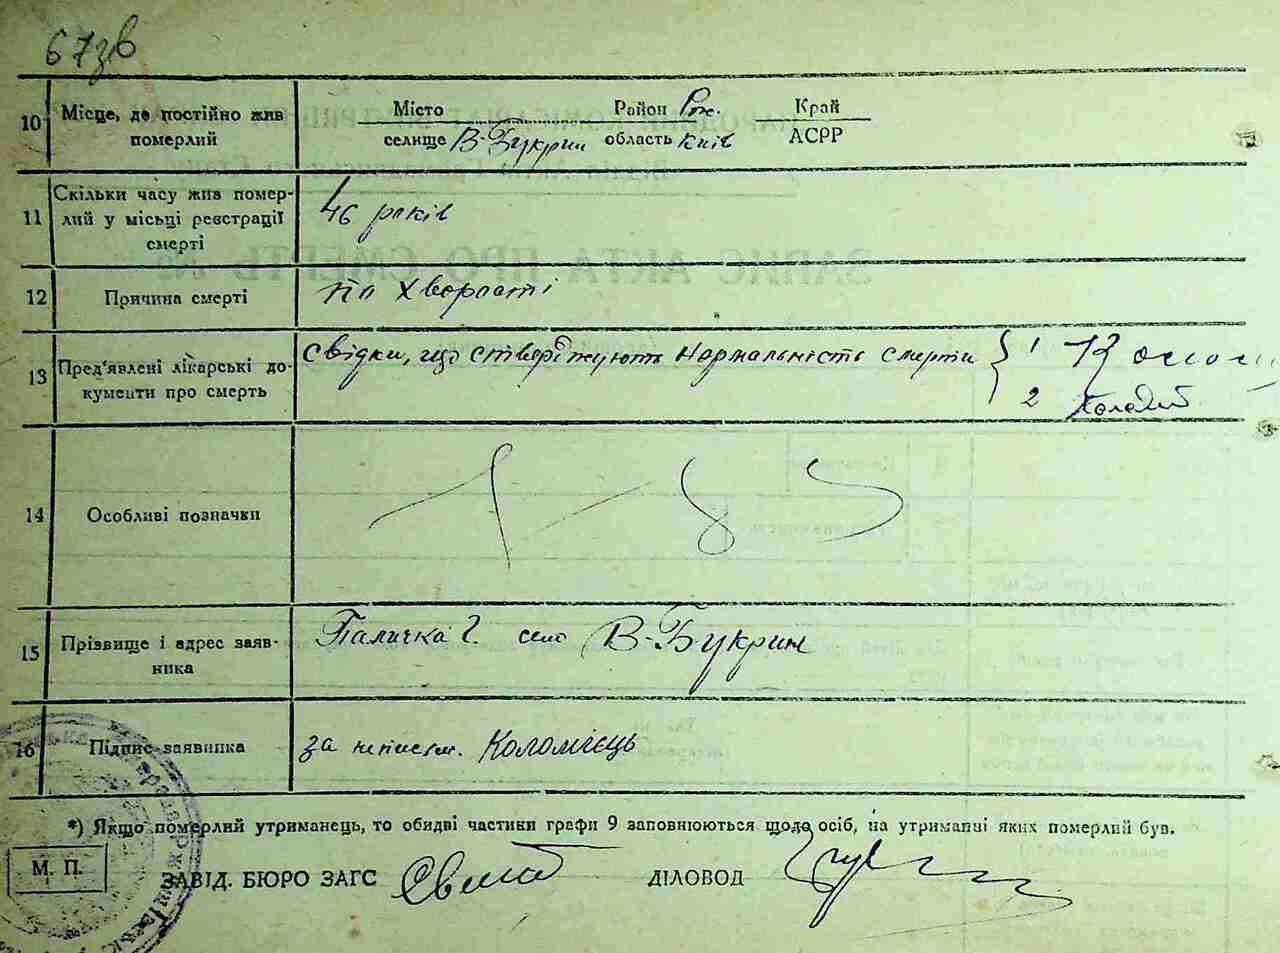 67зв
10 Місце, де постійно жив померлий
Місто Район Рж. Край
селище В-Букрин область Київ АСРР
11 Скільки часу жив померлий у місці реєстрації смерті
46 років
12 Причина смерті
по хворості
13 Пред'явлені лікарські документи про смерть
свідки, що стверджують нормальність смерти
1
2
14 Особливі позначки
15 Прізвище і адрес заявника
Паличка Г. село В-Букрин
16 Підпис заявника
за неписьм. Коломієць
*) Якщо померлий утриманець, то обидві частини графи 9 заповнюються щодо осіб, на утриманні яких померлий був.
М. П.
ЗАВІД. БЮРО ЗАГС
ДІЛОВОД